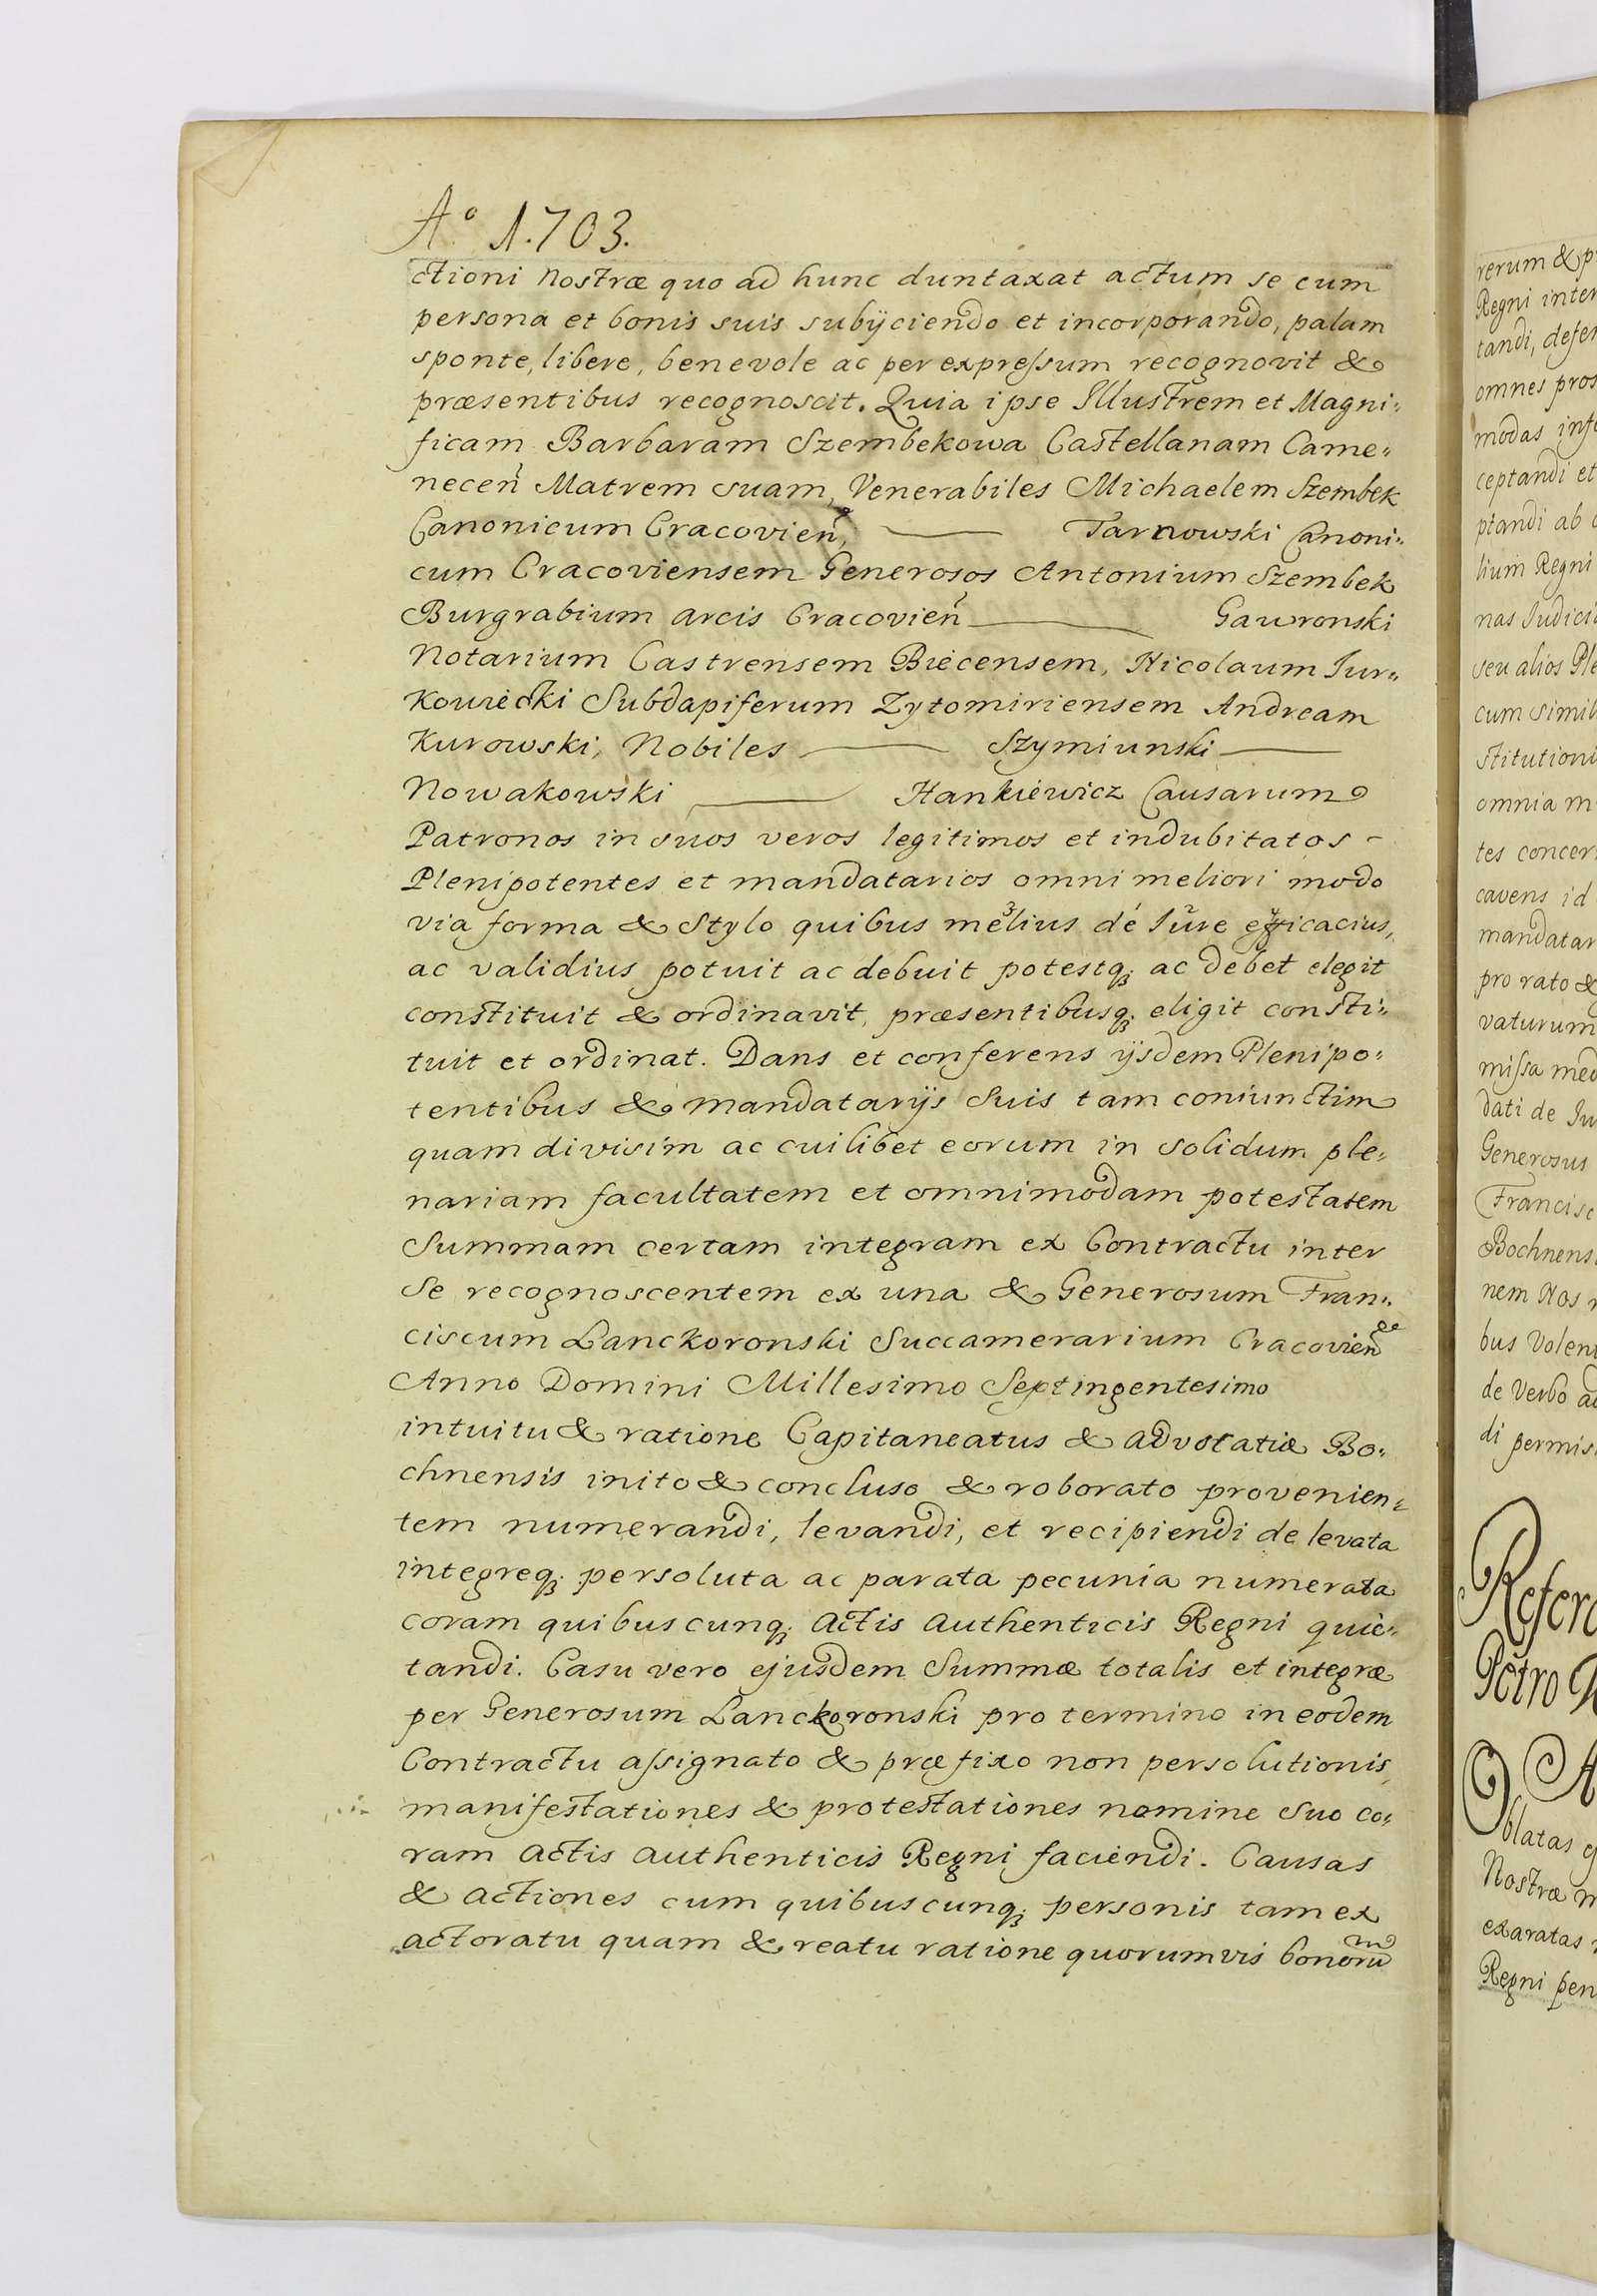 Aº 1.703.
ctioni Nostræ quo ad hunc duntaxat actum se cum
persona et bonis suis subÿciendo et incorporando, palam
sponte, libere, benevole ac per expreſsum recognovit &
præsentibus recognoscit. Quia ipse Illustrem et Magni-
ficam Barbaram Szembekowa Castellanam Came-
neceñ Matrem suam, Venerabiles Michaelem Szembek
Canonicum Cracovieñ, — Tarnowski Canoni-
cum Cracoviensem Generosos Antonium Szembek
Burgrabium Arcis Cracovieñ — Gawronski
Notarium Castrensem Biecensem, Nicolaum Jur-
kowiecki Subdapiferum Zytomiriensem Andream
Kurowski, Nobiles — Szymiunski —
Nowakowski — Hankiewicz Causarum
Patronos in suos veros legitimos et indubitatos -
Plenipotentes et mandatarios omni meliori modo
via forma & Stylo quibus melius de Jure efficacius,
ac validius potuit ac debuit potestq; ac debet elegit
constituit & ordinavit, præsentibusq; eligit consti-
tuit et ordinat. Dans et conferens ÿsdem Plenipo-
tentibus & Mandatarÿs Suis tam coniunctim
quam divisim ac cuilibet eorum in solidum ple-
nariam facultatem et omnimodam potestatem
Summam certam integram ex Contractu inter
Se recognoscentem ex una & Generosum Fran-
ciscum Lanckoronski Succamerarium Cracovieñ de
Anno Domini Millesimo Septingentesimo
intuitu & ratione Capitaneatus & Advocatiæ Bo-
chnensis inito & concluso & roborato provenien-
tem numerandi, levandi, et recipiendi de levata
integreq; persoluta ac parata pecunia numerata
coram quibuscunq; Actis Authenticis Regni quie-
tandi. Casu vero ejusdem Summæ totalis et integræ
per Generosum Lanckoronski pro termino in eodem
Contractu aſsignato & præfixo non persolutionis
manifestationes & protestationes nomine Suo co-
ram Actis Authenticis Regni faciendi. Causas
& actiones cum quibuscunq; personis tam ex
actoratu quam & reatu ratione quorumvis bonorū
rerum &
Regni
tandi,
omnes
modas
ceptandi et
ptandi ab
lium Regni
nas
seu alios
cum
omnia
tes
cavens id
pro rato &
vaturum
miſsa
dati de
Generosus
nem Nos
bus
de Verbo
di
Petro
Nostræ
exaratas
Regni